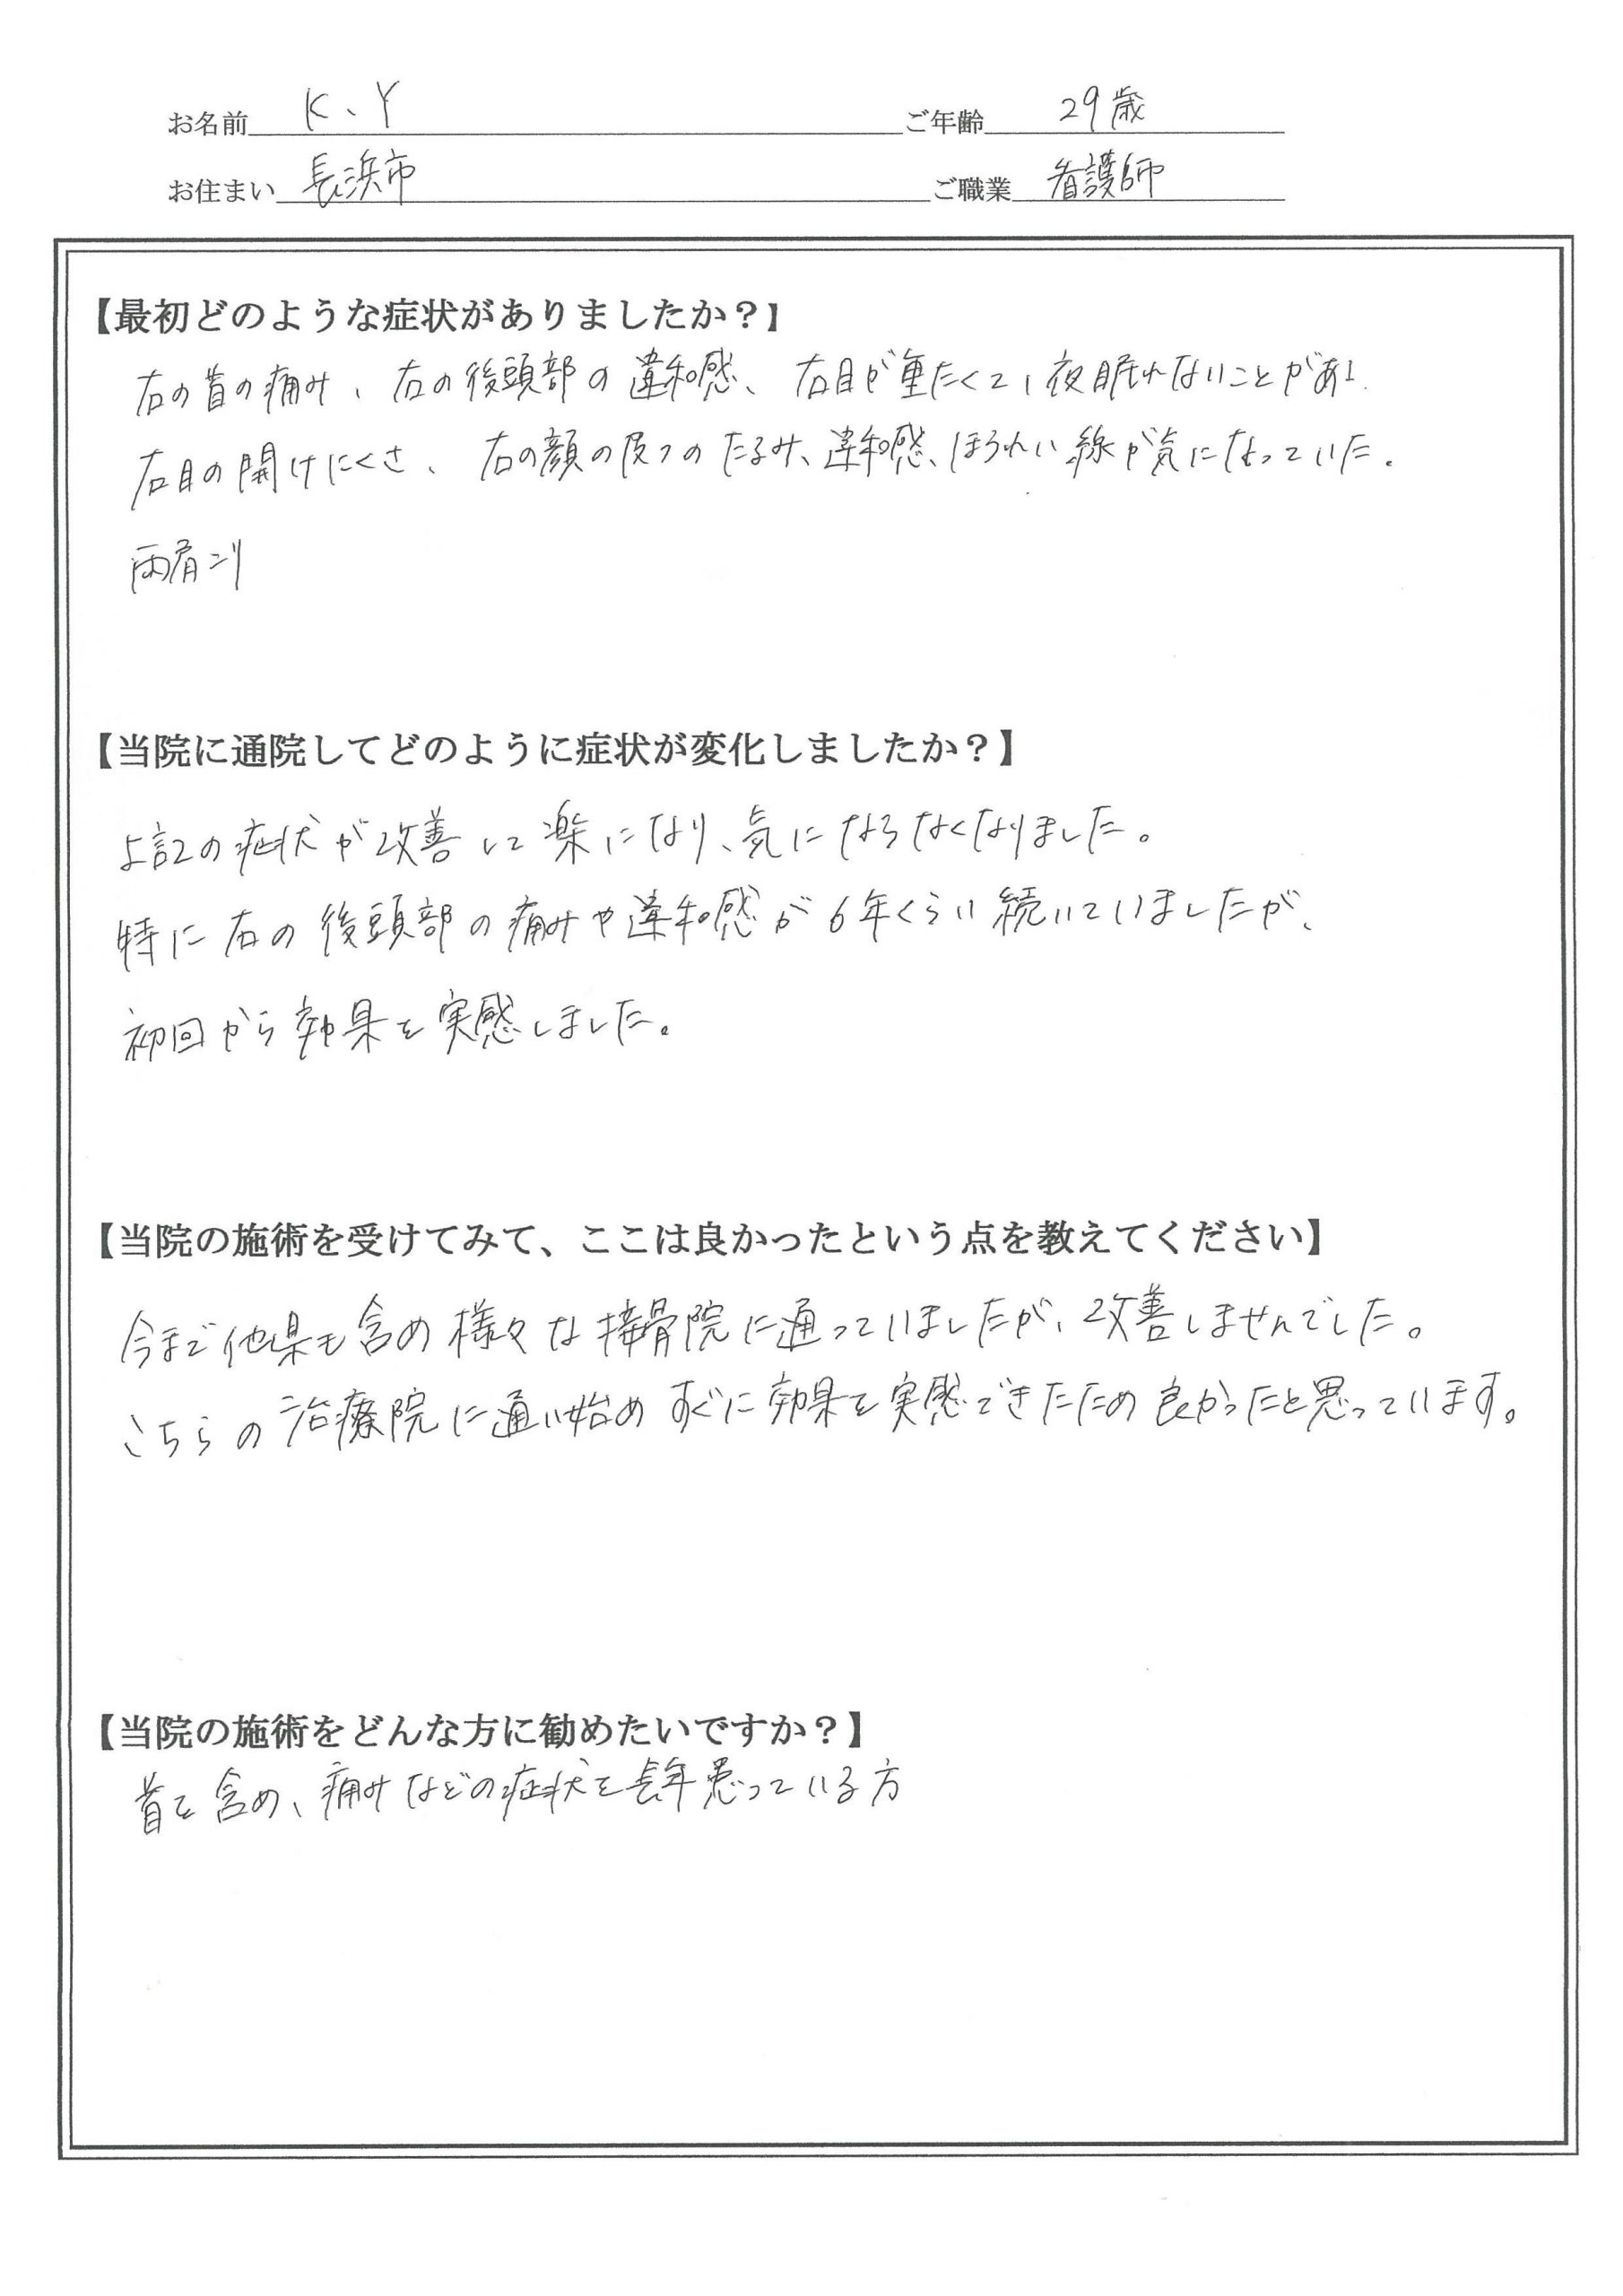 お名前 K、Y ご年齢 29歳
お住まい 長浜市 ご職業 看護師
【最初どのような症状がありましたか？】
右の首の痛み、右の後頭部の違和感、右目が重たくて、夜眠れないことがあり
右目の開けにくさ、右の顔の皮フのたるみ、違和感、ほうれい線が気になっていた。
両肩こり
【当院に通院してどのように症状が変化しましたか？】
上記の症状が改善して楽になり、気にならなくなりました。
特に右の後頭部の痛みや違和感が6年くらい続いていましたが、
初回から効果を実感しました。
【当院の施術を受けてみて、ここは良かったという点を教えてください】
今まで他県も含め様々な接骨院に通っていましたが、改善しませんでした。
こちらの治療院に通い始めすぐに効果を実感できたため良かったと思っています。
【当院の施術をどんな方に勧めたいですか？】
首を含め、痛みなどの症状を長年患っている方